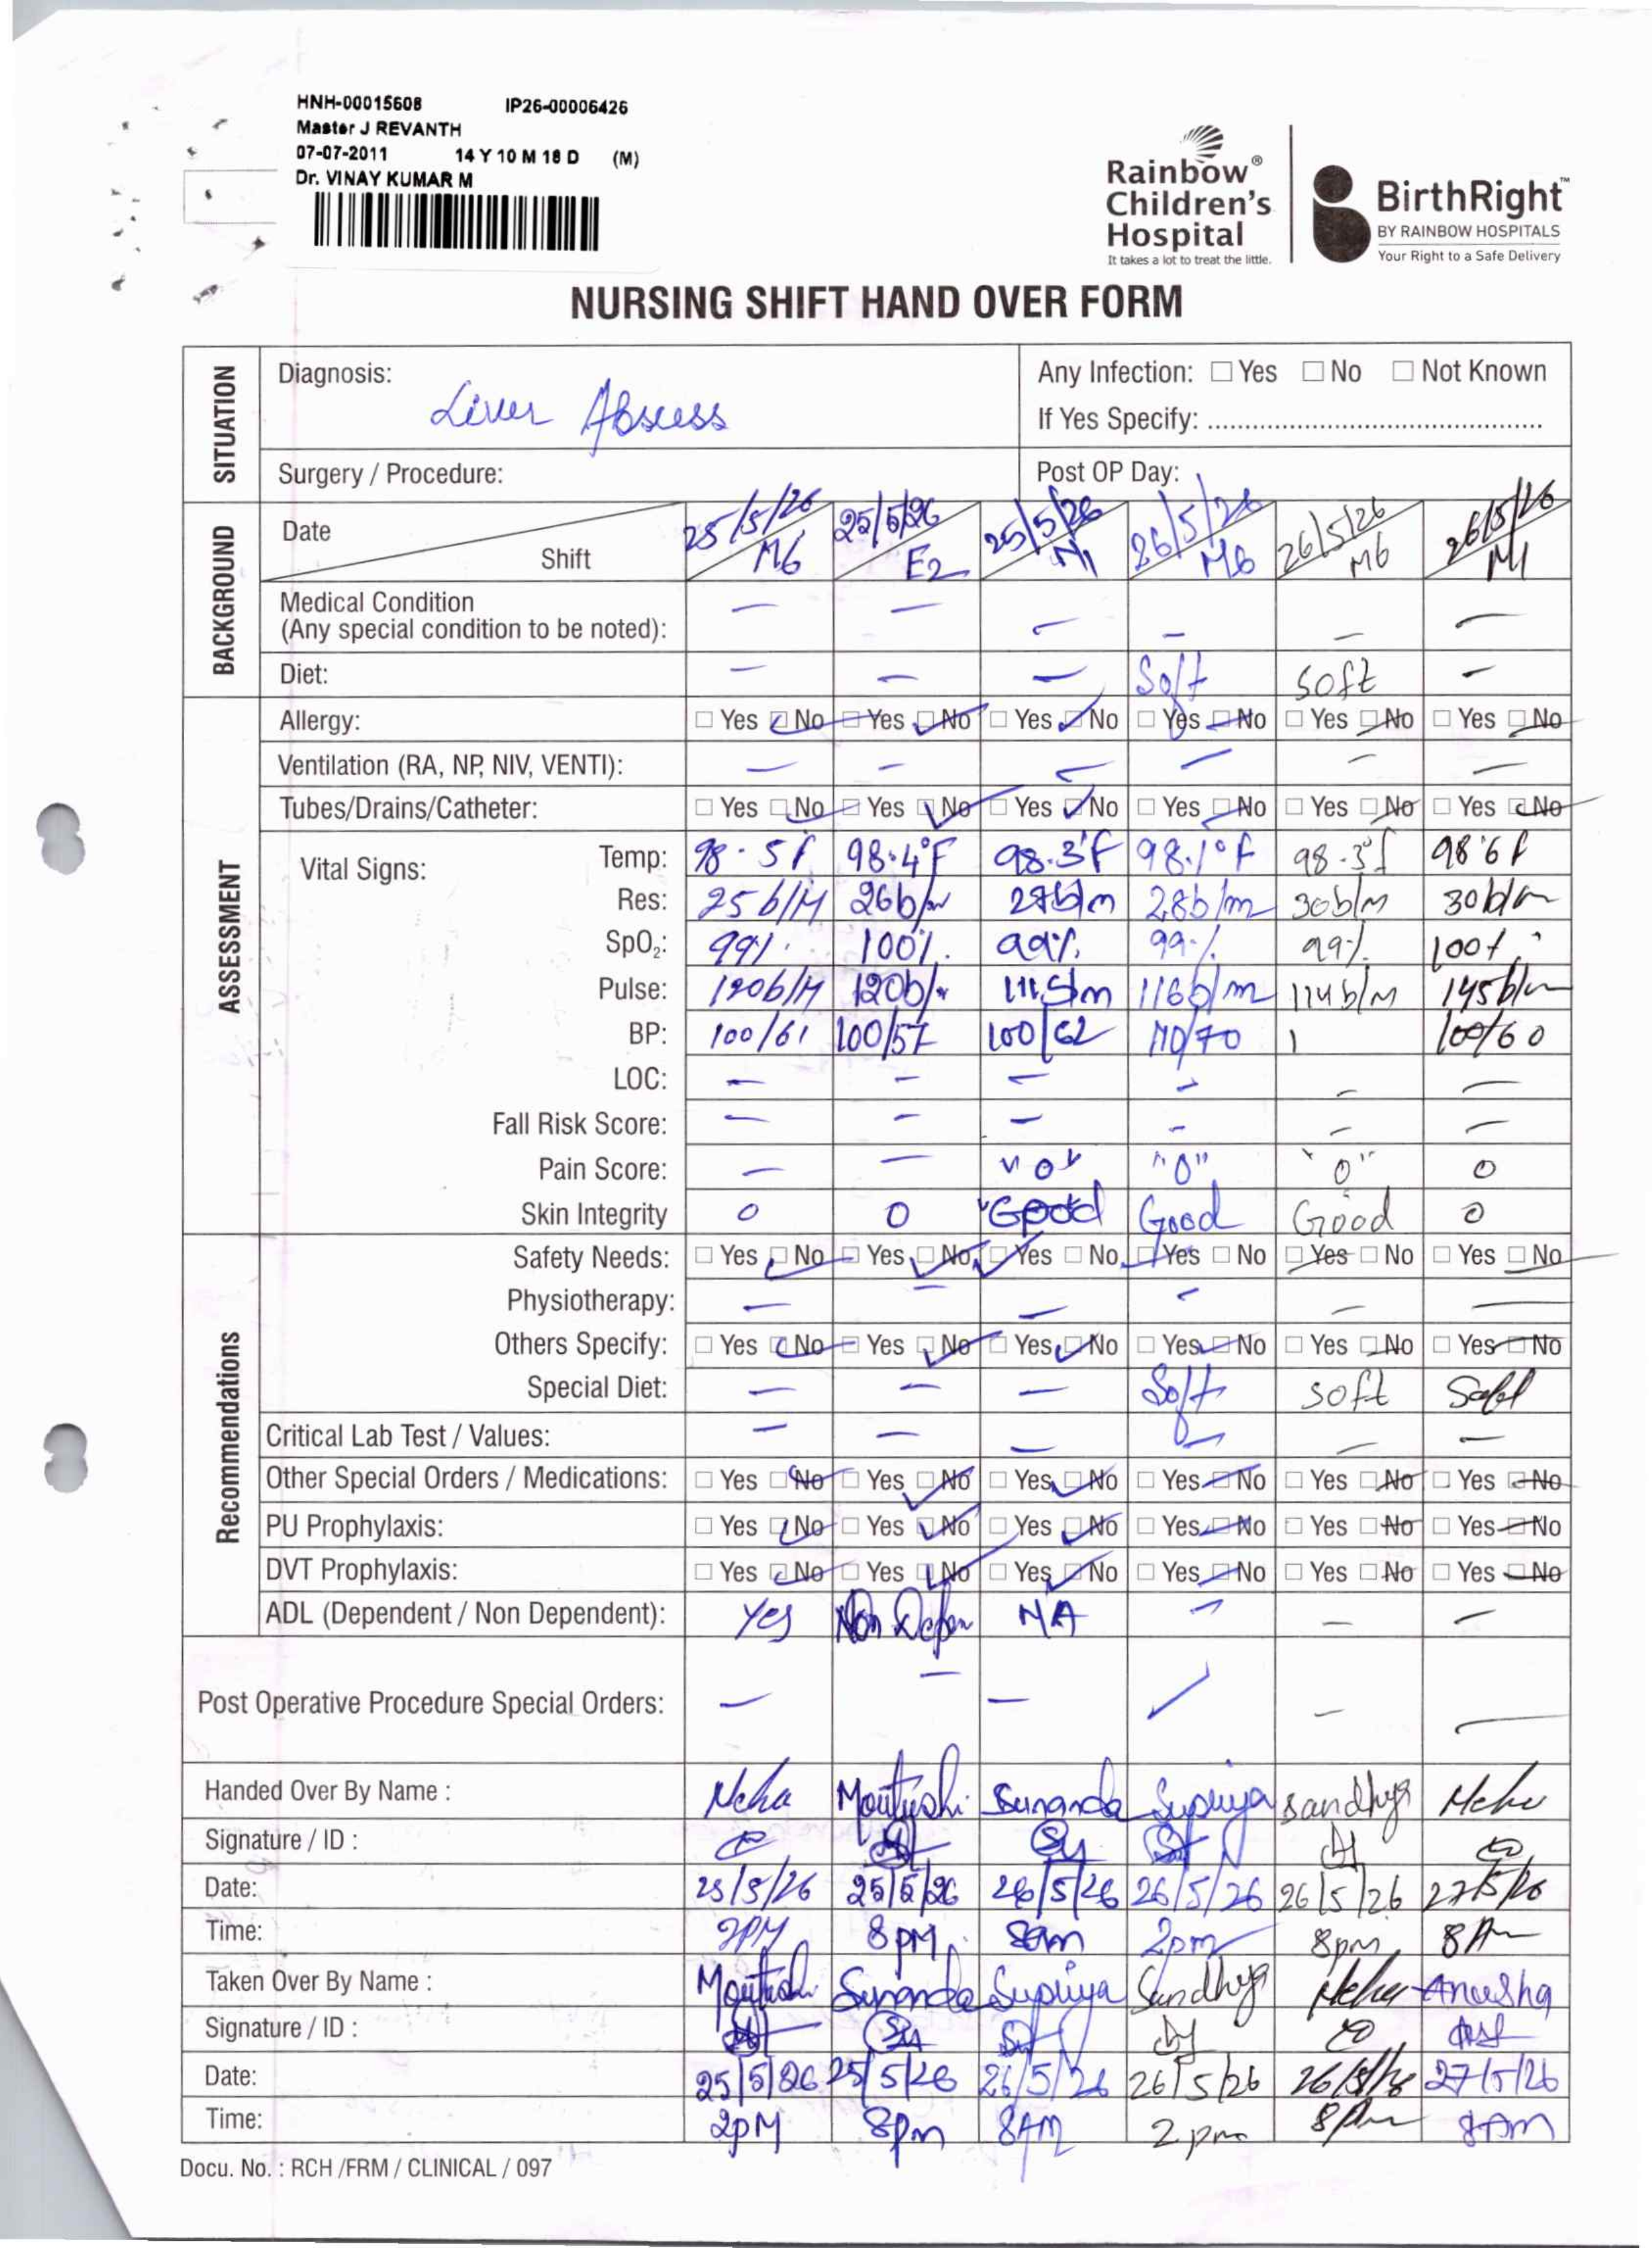 HNH-00015608 IP26-00006426
Master J REVANTH
07-07-2011 14 Y 10 M 18 D (M)
Dr. VINAY KUMAR M
Rainbow® Children's Hospital
It takes a lot to treat the little.
BirthRight™
BY RAINBOW HOSPITALS
Your Right to a Safe Delivery
NURSING SHIFT HAND OVER FORM
SITUATION
Diagnosis: Liver Abscess
Any Infection: □ Yes □ No □ Not Known
If Yes Specify: ..........................................
Surgery / Procedure: Post OP Day:
BACKGROUND
Date 25/5/26 25/5/26 25/5/26 26/5/26 26/5/26 26/5/26
Shift M6 E2 N1 M6 M6 N1
Medical Condition
(Any special condition to be noted): — — — — — —
Diet: — — — Soft soft —
ASSESSMENT
Allergy: □ Yes □ No □ Yes □ No □ Yes □ No □ Yes □ No □ Yes □ No □ Yes □ No
Ventilation (RA, NP, NIV, VENTI): — — — — — —
Tubes/Drains/Catheter: □ Yes □ No □ Yes □ No □ Yes □ No □ Yes □ No □ Yes □ No □ Yes □ No
Vital Signs:
Temp: 98.5f 98.4°F 98.3°F 98.1°F 98.3f 98.6f
Res: 25b/M 26b/m 27b/m 28b/m 30b/M 30b/m
SpO₂: 99% 100% 99% 99% 99% 100%
Pulse: 120b/M 120b/m 111b/m 116b/m 114b/M 145b/m
BP: 100/61 100/57 100/62 110/70 / 100/60
LOC: — — — — — —
Fall Risk Score: — — — — — —
Pain Score: — — "0" "0" "0" 0
Skin Integrity 0 0 Good Good Good 0
Recommendations
Safety Needs: □ Yes □ No □ Yes □ No □ Yes □ No □ Yes □ No □ Yes □ No □ Yes □ No
Physiotherapy: — — — — — —
Others Specify: □ Yes □ No □ Yes □ No □ Yes □ No □ Yes □ No □ Yes □ No □ Yes □ No
Special Diet: — — — Soft soft
Critical Lab Test / Values: — — — — — —
Other Special Orders / Medications: □ Yes □ No □ Yes □ No □ Yes □ No □ Yes □ No □ Yes □ No □ Yes □ No
PU Prophylaxis: □ Yes □ No □ Yes □ No □ Yes □ No □ Yes □ No □ Yes □ No □ Yes □ No
DVT Prophylaxis: □ Yes □ No □ Yes □ No □ Yes □ No □ Yes □ No □ Yes □ No □ Yes □ No
ADL (Dependent / Non Dependent): Yes Non Depen NA — — —
Post Operative Procedure Special Orders: — — — — — —
Handed Over By Name : Neha Moutushi Sunanda Supriya Sandhya Neha
Signature / ID :
Date: 25/5/26 25/5/26 26/5/26 26/5/26 26/5/26 27/5/26
Time: 2PM 8PM 8am 2pm 8pm 8Am
Taken Over By Name : Moutushi Sunanda Supriya Sandhya Neha Anusha
Signature / ID :
Date: 25/5/26 25/5/26 26/5/26 26/5/26 26/5/26 27/5/26
Time: 2PM 8pm 8AM 2pm 8pm 8AM
Docu. No. : RCH /FRM / CLINICAL / 097